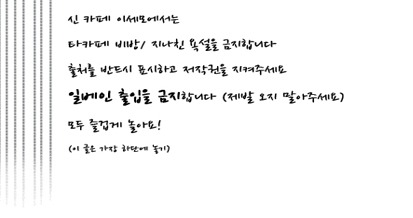 신 카페 이세모에서는
타카페 비방/ 지나친 욕설을 금지합니다
출처를 반드시 표시하고 저작권을 지켜주세요
일베인 출입을 금지합니다 (제발 오지 말아주세요)
모두 즐겁게 놀아요!
(이 글은 가장 하단에 놓기)